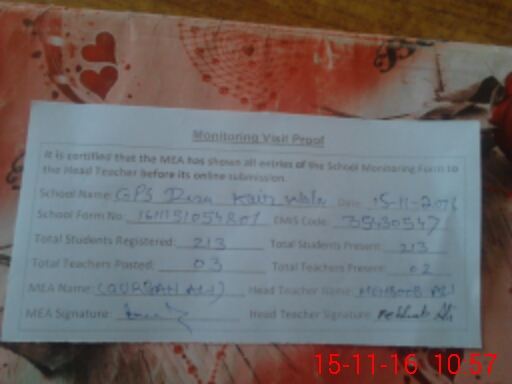 Monitoring Visit Proof
It is certified that the MEA has shown all entries of the School Monitoring Form to
the Head Teacher before its online submission
School Name: GPS Dera Date: 15-11-2016
School Form No: EMIS Code: 35430547
Total Students Registered: 213 Total Students Present: 213
Total Teachers Posted: 03 Total Teachers Present: 02
MEA Name: (QURBAN ALI) Head Teacher Name: MEHBOOB ALI
MEA Signature: Head Teacher Signature:
15-11-16 10:57